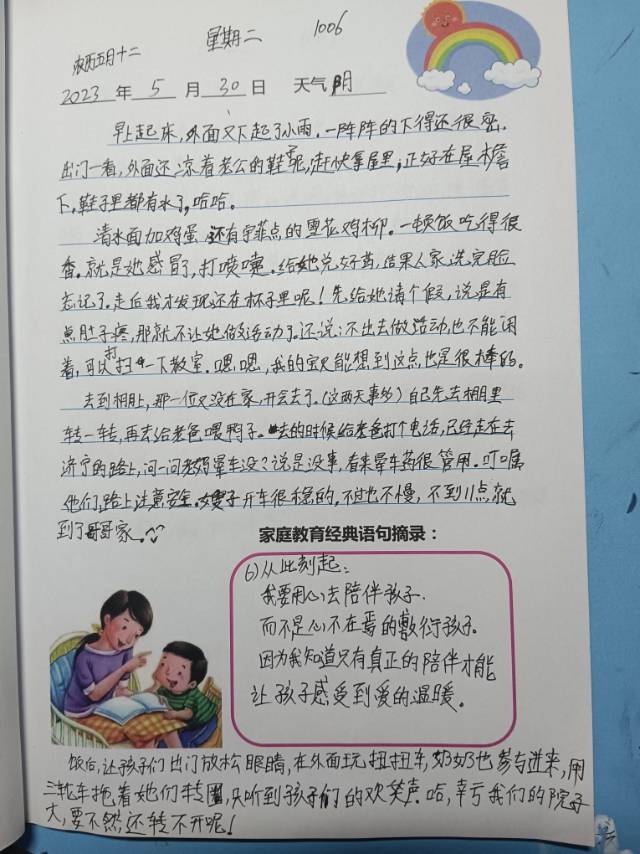 农历五月十二 星期二 1006
2023 年 5 月 30 日 天气 阴
早上起床,外面又下起了小雨,一阵阵的下得还很密,
出门一看,外面还凉着老公的鞋呢,赶快拿屋里,正好在屋檐
下,鞋子里都有水了,哈哈。
清水面加鸡蛋,还有宇菲点的雪花鸡柳。一顿饭吃得很
香。就是她感冒了,打喷嚏。给她兑好药,结果人家洗完脸
忘记了。走后我才发现还在杯子里呢!先给她请个假,说是有
点肚子疼,那就不让她做活动了。还说:不出去做活动,也不能闲
着,可以打扫一下教室。嗯嗯,我的宝贝能想到这点也是很棒的。
去到棚上,那一位又没在家,开会去了。(这两天事多)自己先去棚里
转一转,再去给老爸喂鸭子。去的时候给老爸打个电话,已经走在去
济宁的路上,问一问老妈晕车没?说是没事,看来晕车药很管用。叮嘱
他们,路上注意安全。嫂子开车很稳的,不过也不慢,不到11点就
到了哥哥家。
家庭教育经典语句摘录:
6)从此刻起:
我要用心去陪伴孩子.
而不是心不在焉的敷衍孩子.
因为我知道只有真正的陪伴才能
让孩子感受到爱的温暖。
饭后,让孩子们出门放松眼睛,在外面玩扭扭车,奶奶也参与进来,用
三轮车拖着她们转圈,只听到孩子们的欢笑声。哈,幸亏我们的院子
大,要不然还转不开呢!